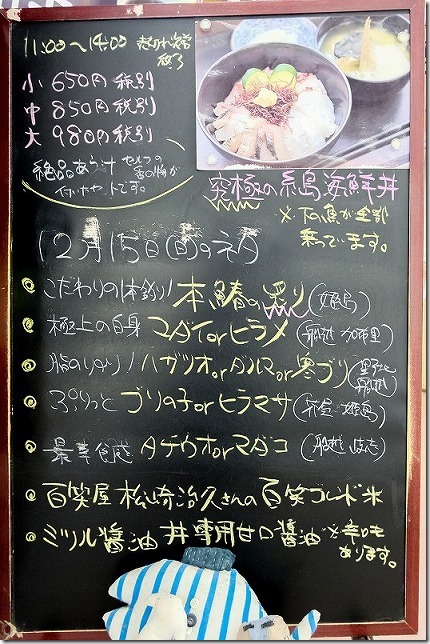 11:00〜14:00 売切れ次第
終了
小 650円 税別
中 850円 税別
大 980円 税別
絶品あら汁
セットです。
究極の糸島海鮮丼
※下の魚が全部
乗ってます。
12月15日(日)のネタ
こだわりの1本釣り 本鰆の炙り (姫島)
極上の白身 マダイorヒラメ (船越 加布里)
脂のり ハガツオorダルマor寒ブリ (野北 船越)
ぷりっと ブリの子orヒラマサ (姫島)
最幸食感 タチウオorマダコ (船越 岐志)
百笑屋 松崎治久さんの百笑ブレンド米
ミツル醤油 丼専用甘口醤油 ※辛口も
あります。